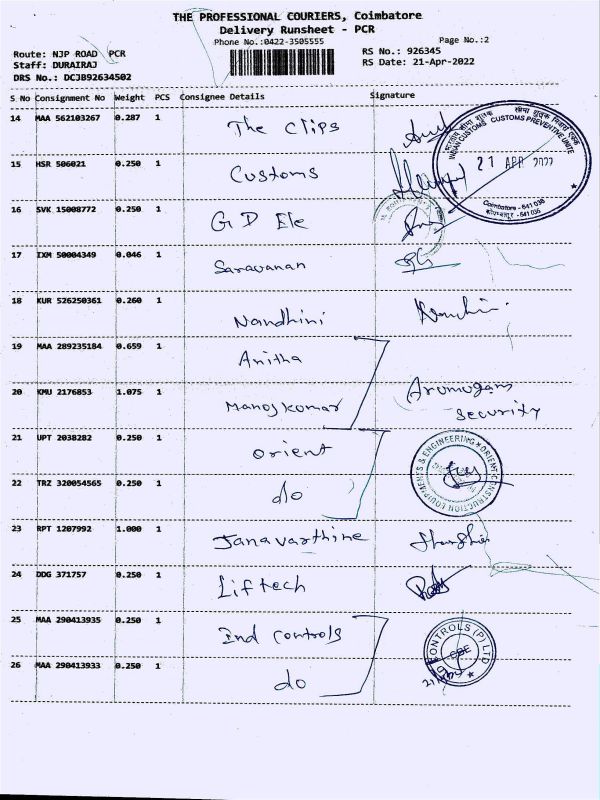 THE PROFESSIONAL COURIERS, Coimbatore
Delivery Runsheet - PCR
Phone No.:0422-3505555
Page No.:2
Route: NJP ROAD PCR
RS No.: 926345
Staff: DURAIRAJ
RS Date: 21-Apr-2022
DRS No.: DCJB92634502
S No Consignment No Weight PCS Consignee Details Signature
14 MAA 562103267 0.287 1 The Clips
INDIAN CUSTOMS CUSTOMS PREVENTIVE UNITE
21 APR 2022
Coimbatore - 641 038
15 HSR 506021 0.250 1 Customs
16 SVK 15008772 0.250 1 G D Ele
17 IXM 50004349 0.046 1 Saravanan
18 KUR 526250361 0.260 1 Nandhini
19 MAA 289235184 0.659 1 Anitha
20 KMU 2176853 1.075 1 Manojkumar Arumugam
Security
21 UPT 2038282 0.250 1 Orient
ORIENT CONSTRUCTION EQUIPMENTS & ENGINEERING
22 TRZ 320054565 0.250 1 do
23 RPT 1207992 1.000 1 Janavarthine
24 DDG 371757 0.250 1 Liftech
25 MAA 290413935 0.250 1 Ind Controls
CONTROLS (P) LTD
CBE
26 MAA 290413933 0.250 1 do